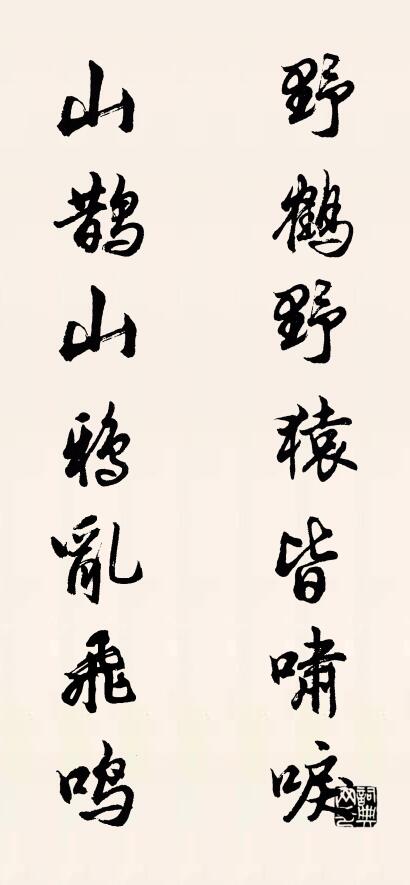 野鶴野猿皆嘯唳
山鵲山鴉亂飛鳴
詞典網